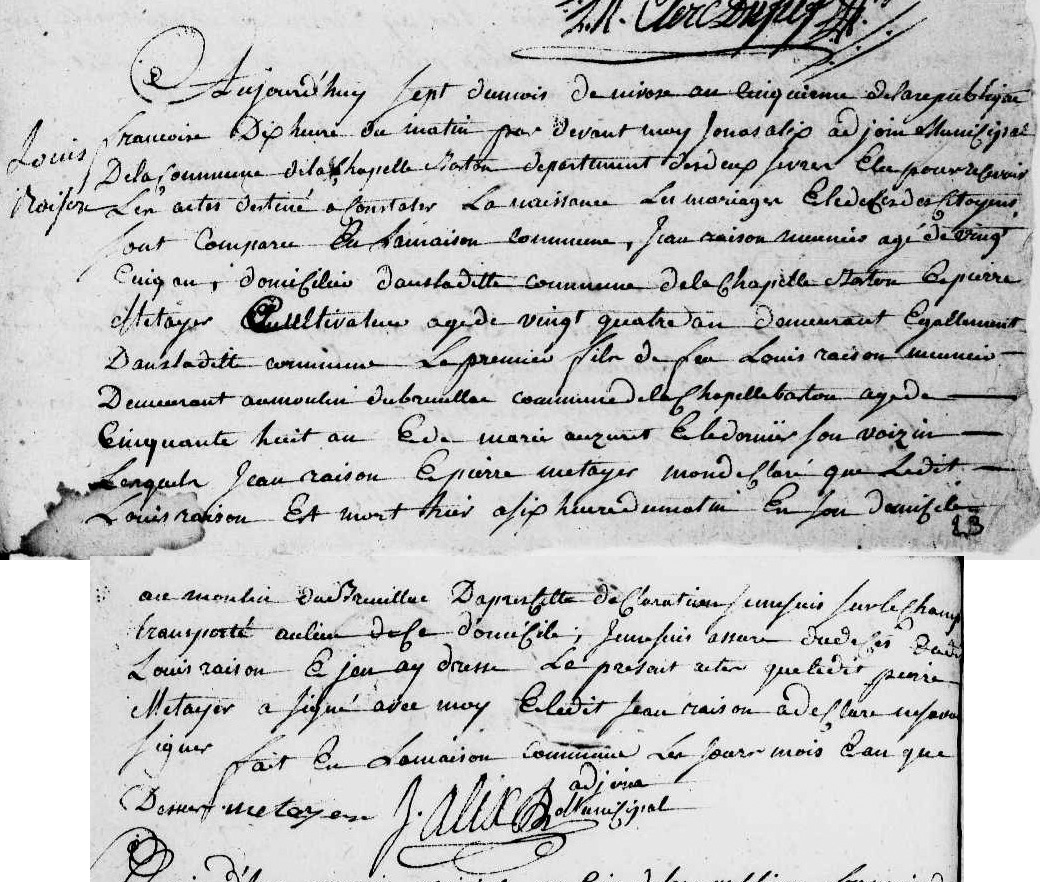 J.N. Clerc Dupuy
Aujourd'huy sept dumois de nivose an Cinquieme delarepublique
francoise Dix heure du matin par devant moy Jonas alix adjoint Municipal
Louis raison
Dela Commune dela Chapelle Baton departement des deux sevres Elu pour recevoir
Les actes destiné a Constater La naissance Les mariages Et le décès des Citoyens
sont Comparu En Lamaison commune, Jean raison meunier agé de vingt
Cinq an, domicilié dans laditte commune dela Chapelle Baton Et pierre
Metayer Cultivateur agé de vingt quatre an demeurant Egallement
Dans laditte commune Le premier fils de feu Louis raison meunier
Demeurant au moulin du breuillac commune dela Chapelle baton agé de
Cinquante huit an Et de marie auzuret Et le dernier son voizin
Lesquels Jean raison Et pierre metayer mon déclaré que Ledit
Louis raison Est mort hier a six heure du matin En son domicile
23
au moulin du Breuillac Dapres cette declaration je me suis sur le champ
transporté au lieu de ce domicile, je me suis assuré du decès dudit
Louis raison Et jen ay dressé Le présent acter que ledit pierre
Metayer a signé avec moy Et ledit Jean raison a declaré ne savoir
signer fait En Lamaison commune Les jours mois Et an que
Dessus metayer J. alix adjoint
Municipal